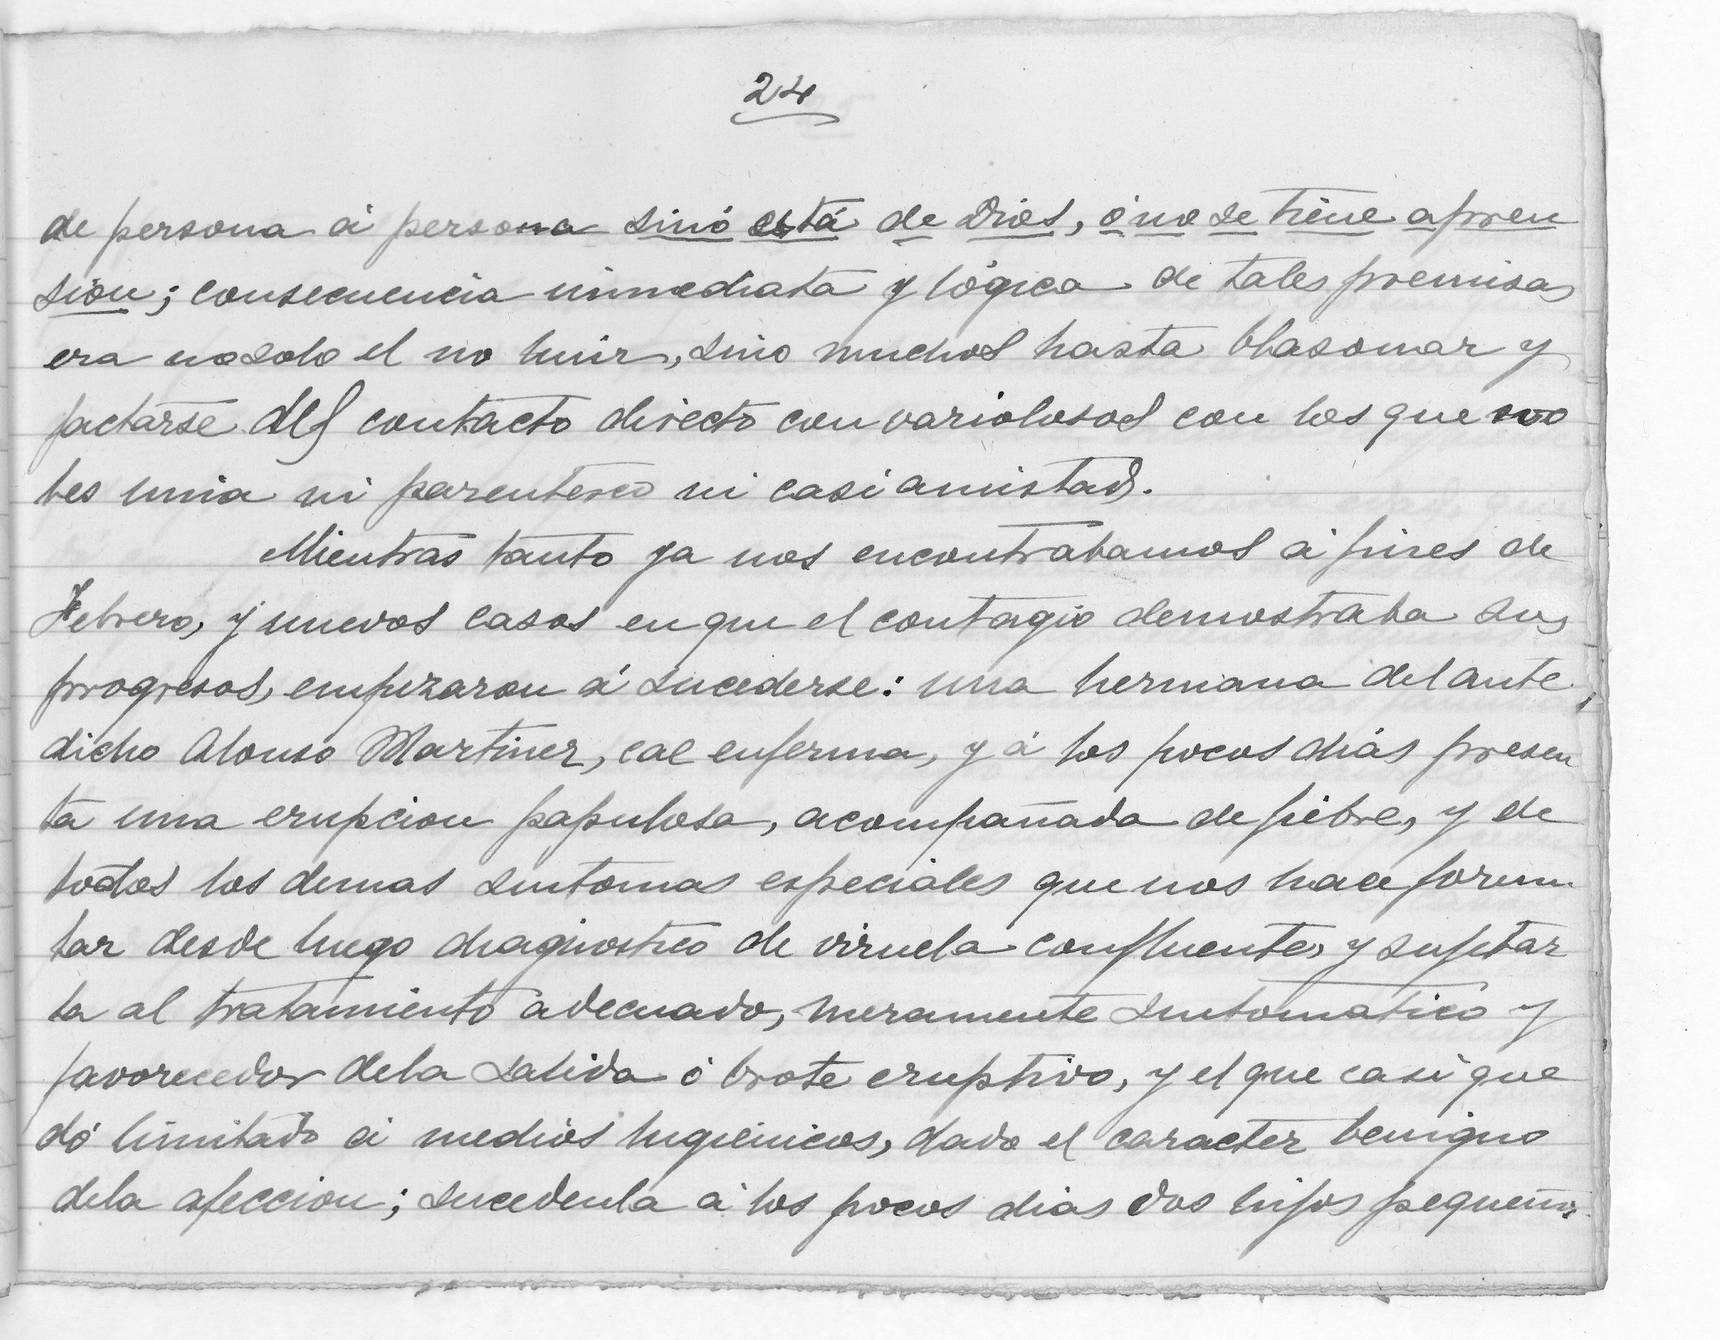 24
de persona á persona sinó está de Dios, ó no se tiene apren
sion; consecuencia inmediata y lógica de tales premisas
era no solo el no huir, sino muchos hasta blasonar y
jactarse del contacto directo con variolosos con los que no
les unia ni parentesco ni casi amistad.
Mientras tanto ya nos encontrabamos á fines de
Febrero, y nuevos casos en que el contagio demostraba sus
progresos, empezaron á sucederse: una hermana del ante
dicho Alonso Martinez, cae enferma, y á los pocos dias presen
ta una erupcion papulosa, acompañada de fiebre, y de
todos los demas sintomas especiales que nos hace formu
lar desde luego diagnostico de viruela confluente, y sujetar
la al tratamiento adecuado, meramente sintomatico y
favorecedor de la salida ó brote eruptivo, y el que casi que
dó limitado á medios higienicos, dado el caracter benigno
de la afeccion; sucedenla á los pocos dias dos hijos pequeños